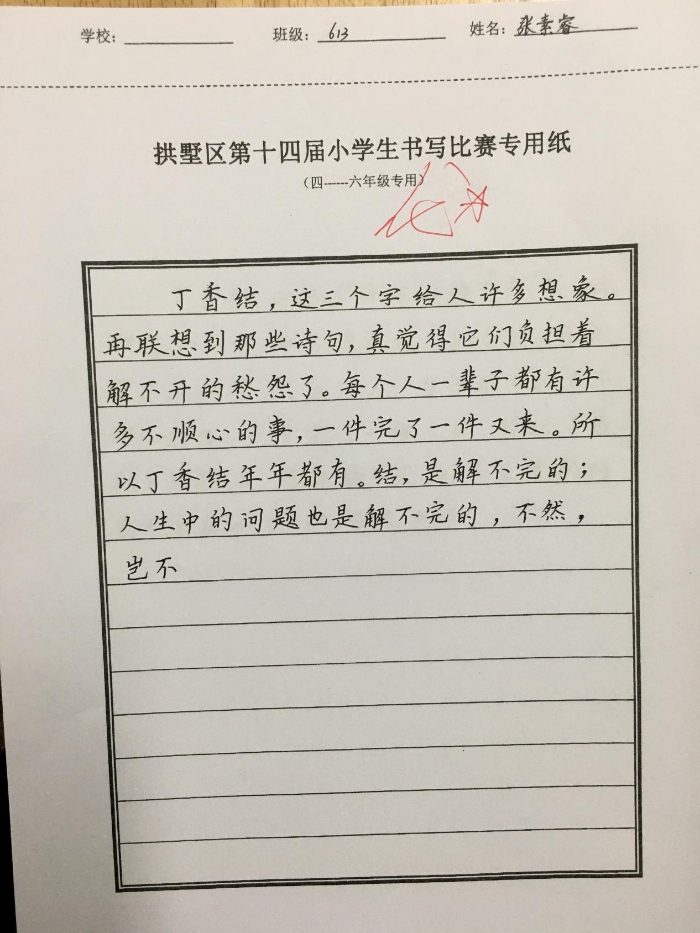 学校: 班级: 613 姓名: 张素睿
拱墅区第十四届小学生书写比赛专用纸
（四------六年级专用）
丁香结，这三个字给人许多想象。
再联想到那些诗句，真觉得它们负担着
解不开的愁怨了。每个人一辈子都有许
多不顺心的事，一件完了一件又来。所
以丁香结年年都有。结，是解不完的；
人生中的问题也是解不完的，不然，
岂不